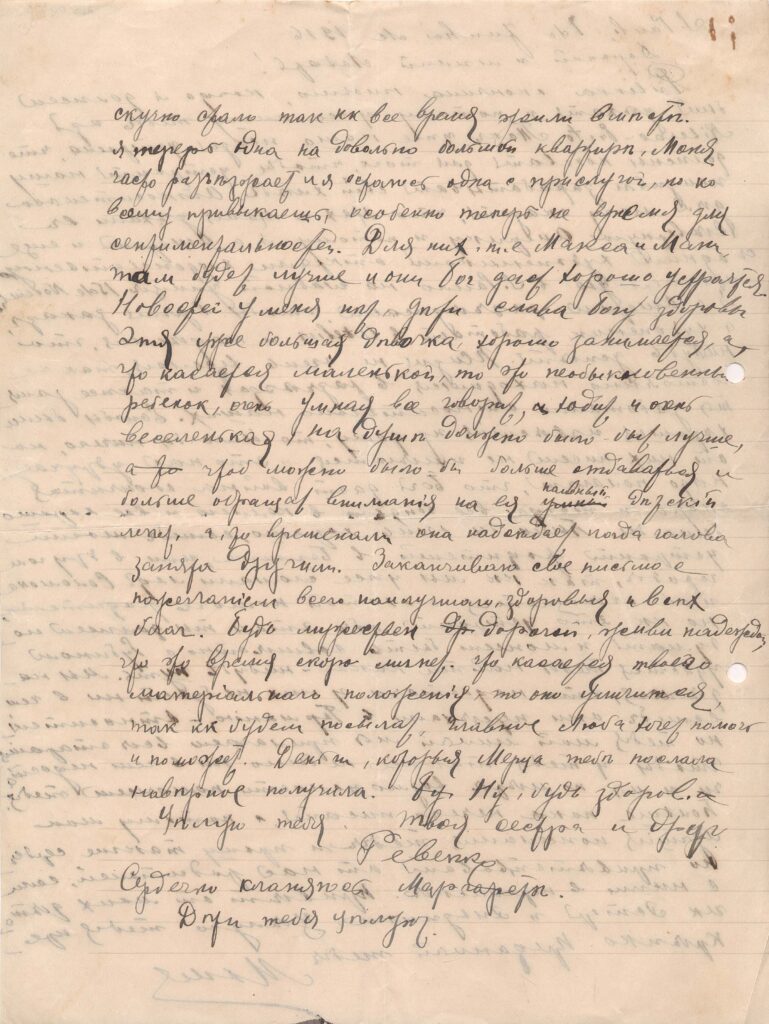 скучно стало так кк все время жили вместѣ.
я теперь одна на довольно большой квартирѣ. Моня
часто разъѣзжает и я остаюсь одна с прислугой, но ко
всему привыкаешь, особенно теперь не время для
сентиментальностей. Для них т.е Макса и Мани
там будет лучше и они бог даст хорошо устроятся.
Новостей у меня нѣт, дѣти слава богу здоровы
Этя уже большая дѣвочка, хорошо занимается, а,
что касается маленькой, то это необыкновенный
ребенок, очень умная все говорит, и ходит и очень
веселенькая, на душѣ должно было быт лучше,
чтоб можно было бы больше отдаваться и
больше обращат вниманія на ея наивный дѣтскій
лепет, а, то временами она надоѣдает когда голова
занята другим. Заканчиваю свое письмо с
пожеланіем всего наилучшаго, здоровья и всѣх
благ. Будь мужествен дорогой, живи надеждой,
что это время скоро минет. Что касается твоего
матеріальнаго положенія, то оно улучшится,
так кк будем посылат, главное Люба хочет помочь
и поможет. Деньги, которыя Мерца тебѣ послала
навѣрное получила. Ну, будь здоров. и
Цѣлую тебя. Твоя сестра и друг
Ревекка
Сердечно кланяюсь Маргаретѣ.
Дѣти тебя цѣлуют.